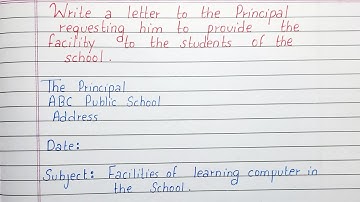 Write a letter to the Principal
requesting him to provide the
facility to the students of the
school.
The Principal
ABC Public School
Address
Date:
Subject: Facilities of learning computer in
the School.